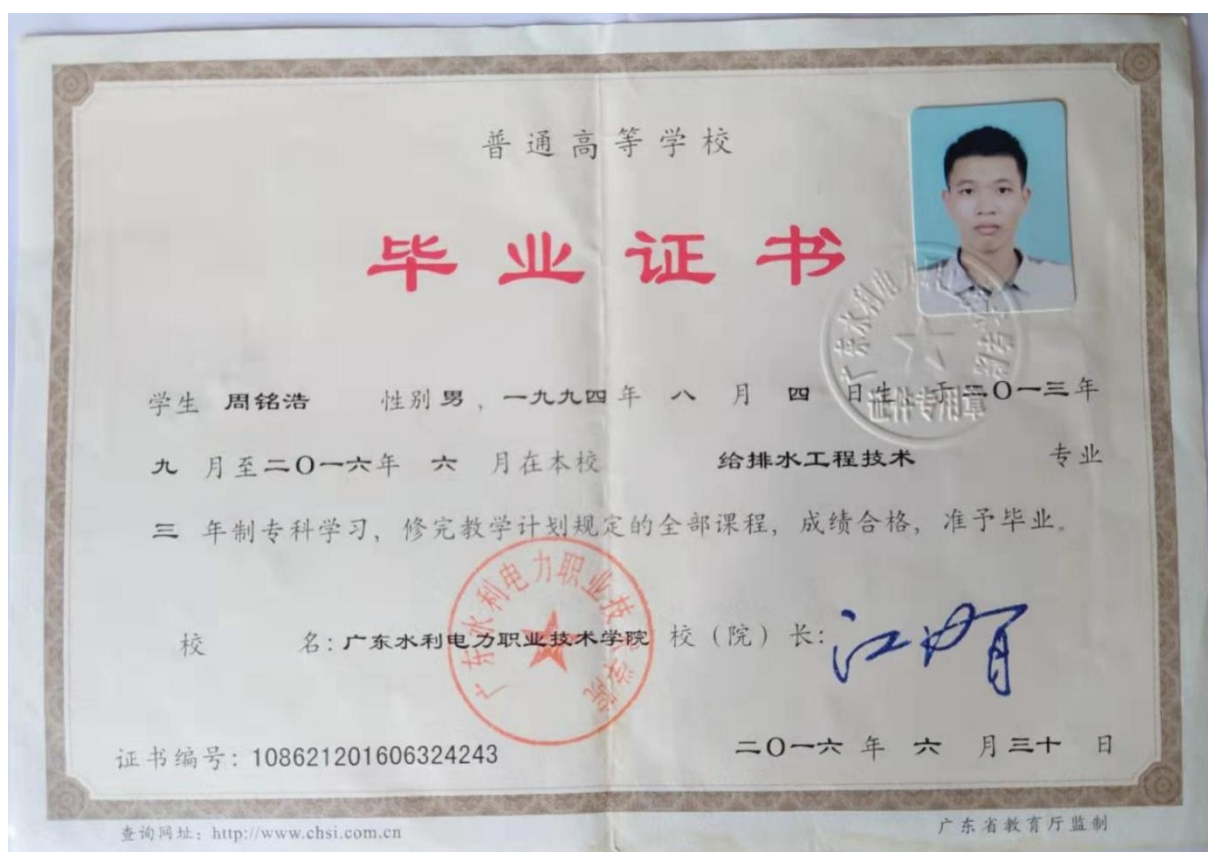 普通高等学校
毕业证书
学生 周铭浩 性别 男 ，一九九四 年 八 月 四 日生，于二〇一三年
九 月至二〇一六年 六 月在本校 给排水工程技术 专业
三 年制专科学习，修完教学计划规定的全部课程，成绩合格，准予毕业。
校 名：广东水利电力职业技术学院 校（院）长：
广东水利电力职业技术学院
证件专用章
证书编号：108621201606324243
二〇一六 年 六 月三十 日
查询网址：http://www.chsi.com.cn
广东省教育厅监制